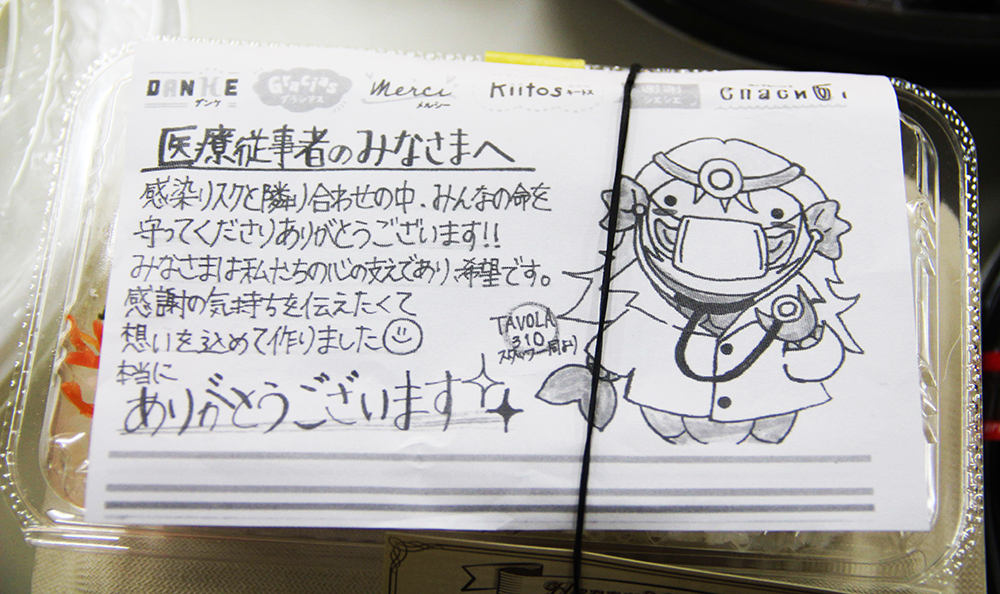 DANKE Gracias Merci Kiitos
ダンケ グラシアス メルシー キートス シエシエ
医療従事者のみなさまへ
感染リスクと隣り合わせの中、みんなの命を
守ってくださりありがとうございます!!
みなさまは私たちの心の支えであり、希望です。
感謝の気持ちを伝えたくて
想いを込めて作りました
本当に
ありがとうございます
TAVOLA
310
スタッフ一同より